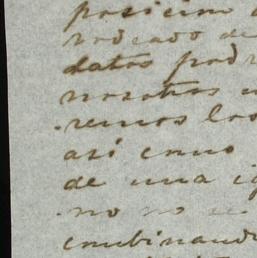 posicion
rodeado de
datos pod
nosotros
remos los
así como
de una ig
no no se
combinand